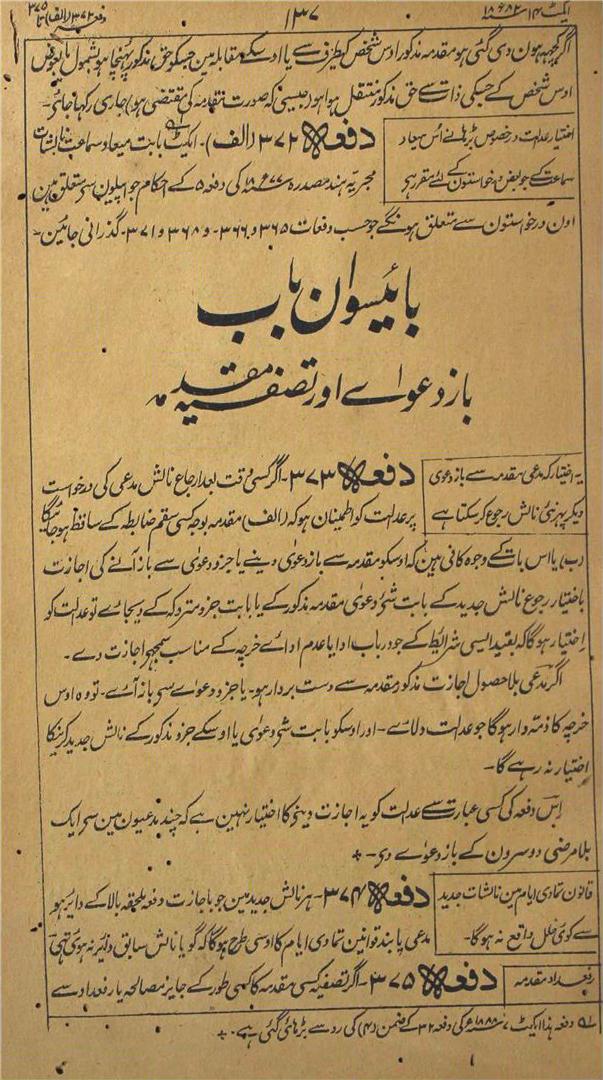 ایکٹ ۱۴ سنہ ۱۸۸۲ء
۱۳۷
دفعہ ۳۷۲ (الف) تا ۳۷۵
اگر کچھ ہون دی گئی ہو مقدمہ مذکور اوس شخص کیطرف سے یا اوسکے مقابلہ مین جسکو حق مذکور پہنچا ہو بشمول یا بعوض
اوس شخص کے جسکی ذات سے حق مذکور منتقل ہوا ہو (جیسی کہ صورت مقدمہ کی مقتضی ہو) جاری رکھا جائے۔
اختیار عدالت درخصوص بڑھانے اُس میعاد
سماعت کے جو بعض درخواستون کے لئے مقرر ہی
دفعہ ۳۷۲ (الف)۔ ایکٹ بابت میعاد سماعت نالشات
مجریہ ہند مصدرہ ۱۸۷۷ء کی دفعہ ۵ کے احکام جو اپیلون سے متعلق ہین
اون درخواستون سے متعلق ہونگے جو حسب دفعات ۳۶۵ و ۳۶۶ و ۳۶۸ و ۳۷۱ گذرانی جائین۔
بائیسوان باب
باز دعوائے اور تصفیہ مقدمہ
یہ اختیار کہ مدعی مقدمہ سے باز دعوی
دیکر پھر نئی نالش رجوع کر سکتا ہے
دفعہ ۳۷۳۔ اگر کسی وقت بعد ارجاع نالش مدعی کی درخواست
پر عدالت کو اطمینان ہو کہ (الف) مقدمہ بوجہ کسی سقم ضابطہ کے ساقط ہو جائیگا
(ب) یا اس بات کے وجوہ کافی ہین کہ اوسکو مقدمہ سے باز دعوی دینے یا جزو دعوٰی سے باز آنے کی اجازت
باختیار رجوع نالش جدید کے بابت شئ دعوٰی مقدمہ مذکور کے یا بابت جزو متروکہ کے دیجائے تو عدالت کو
اختیار ہوگا کہ بقید ایسی شرائط کے جو درباب ادا یا عدم ادائے خرچہ کے مناسب سمجھے اجازت دے۔
اگر مدعی بلا حصول اجازت مذکور مقدمہ سے دست بردار ہو۔ یا جزو دعواے سی باز آئے۔ تو وہ اوس
خرچہ کا ذمّہ وار ہوگا جو عدالت دلائے۔ اور اوسکو بابت شئ دعوٰی یا اوسکے جزو مذکور کے نالش جدید کرنیکا
اختیار نہ رہے گا۔
اس دفعہ کی کسی عبارت سے عدالت کو یہ اجازت دینیکا اختیار نہین ہے کہ چند مدعیون مین سی ایک
بلا مرضی دوسرون کے باز دعواے دی۔
قانون تمادی ایام مین نالشات جدید
سے کوئی خلل واقع نہ ہوگا۔
دفعہ ۳۷۴۔ ہر نالش جدید مین جو باجازت دفعہ ملحقہ بالا کے دایر ہو
مدعی پابند قوانین تمادی ایام کا اوسی طرح ہوگا کہ گویا نالش سابق دایر نہ ہوئی تھی
رفعداد مقدمہ
دفعہ ۳۷۵۔ اگر تصفیہ کسی مقدمہ کا کلی طور کے جایز مصالحہ یا رفعداد سے
لہ دفعہ ہذا ایکٹ ۷ سنہ ۱۸۸۸ء کی دفعہ ۳۲ کے ضمن (۴) کی رو سے بڑھائی گئی ہے۔